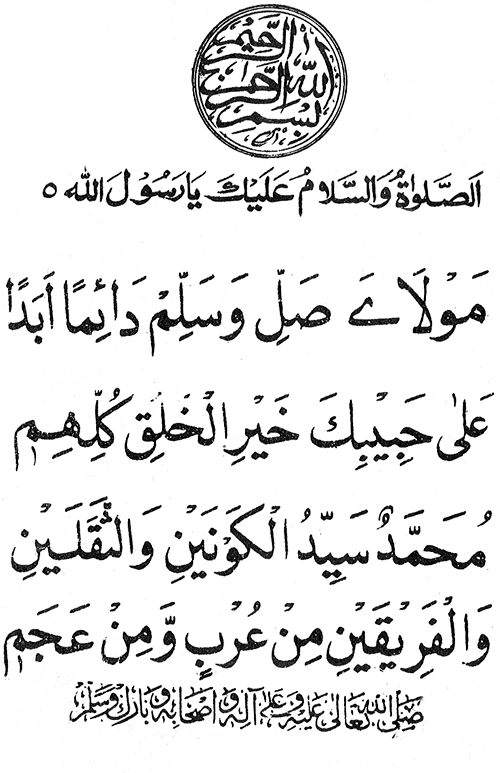 بسم الله الرحمن الرحيم
اَلصَّلوٰةُ وَالسَّلَامُ عَلَيْكَ يَا رَسُوْلَ اللّٰه ٥
مَوْلَاےَ صَلِّ وَسَلِّمْ دَائِمًا اَبَدًا
عَلٰى حَبِيْبِكَ خَيْرِ الْخَلْقِ كُلِّهِمِ
مُحَمَّدٌ سَيِّدُ الْكَوْنَيْنِ وَالثَّقَلَيْنِ
وَالْفَرِيْقَيْنِ مِنْ عُرْبٍ وَّمِنْ عَجَمِ
صَلَّى اللهُ تَعَالٰى عَلَيْهِ وَعَلٰى آلِهٖ وَاَصْحَابِهٖ وَبَارَكَ وَسَلَّمَ